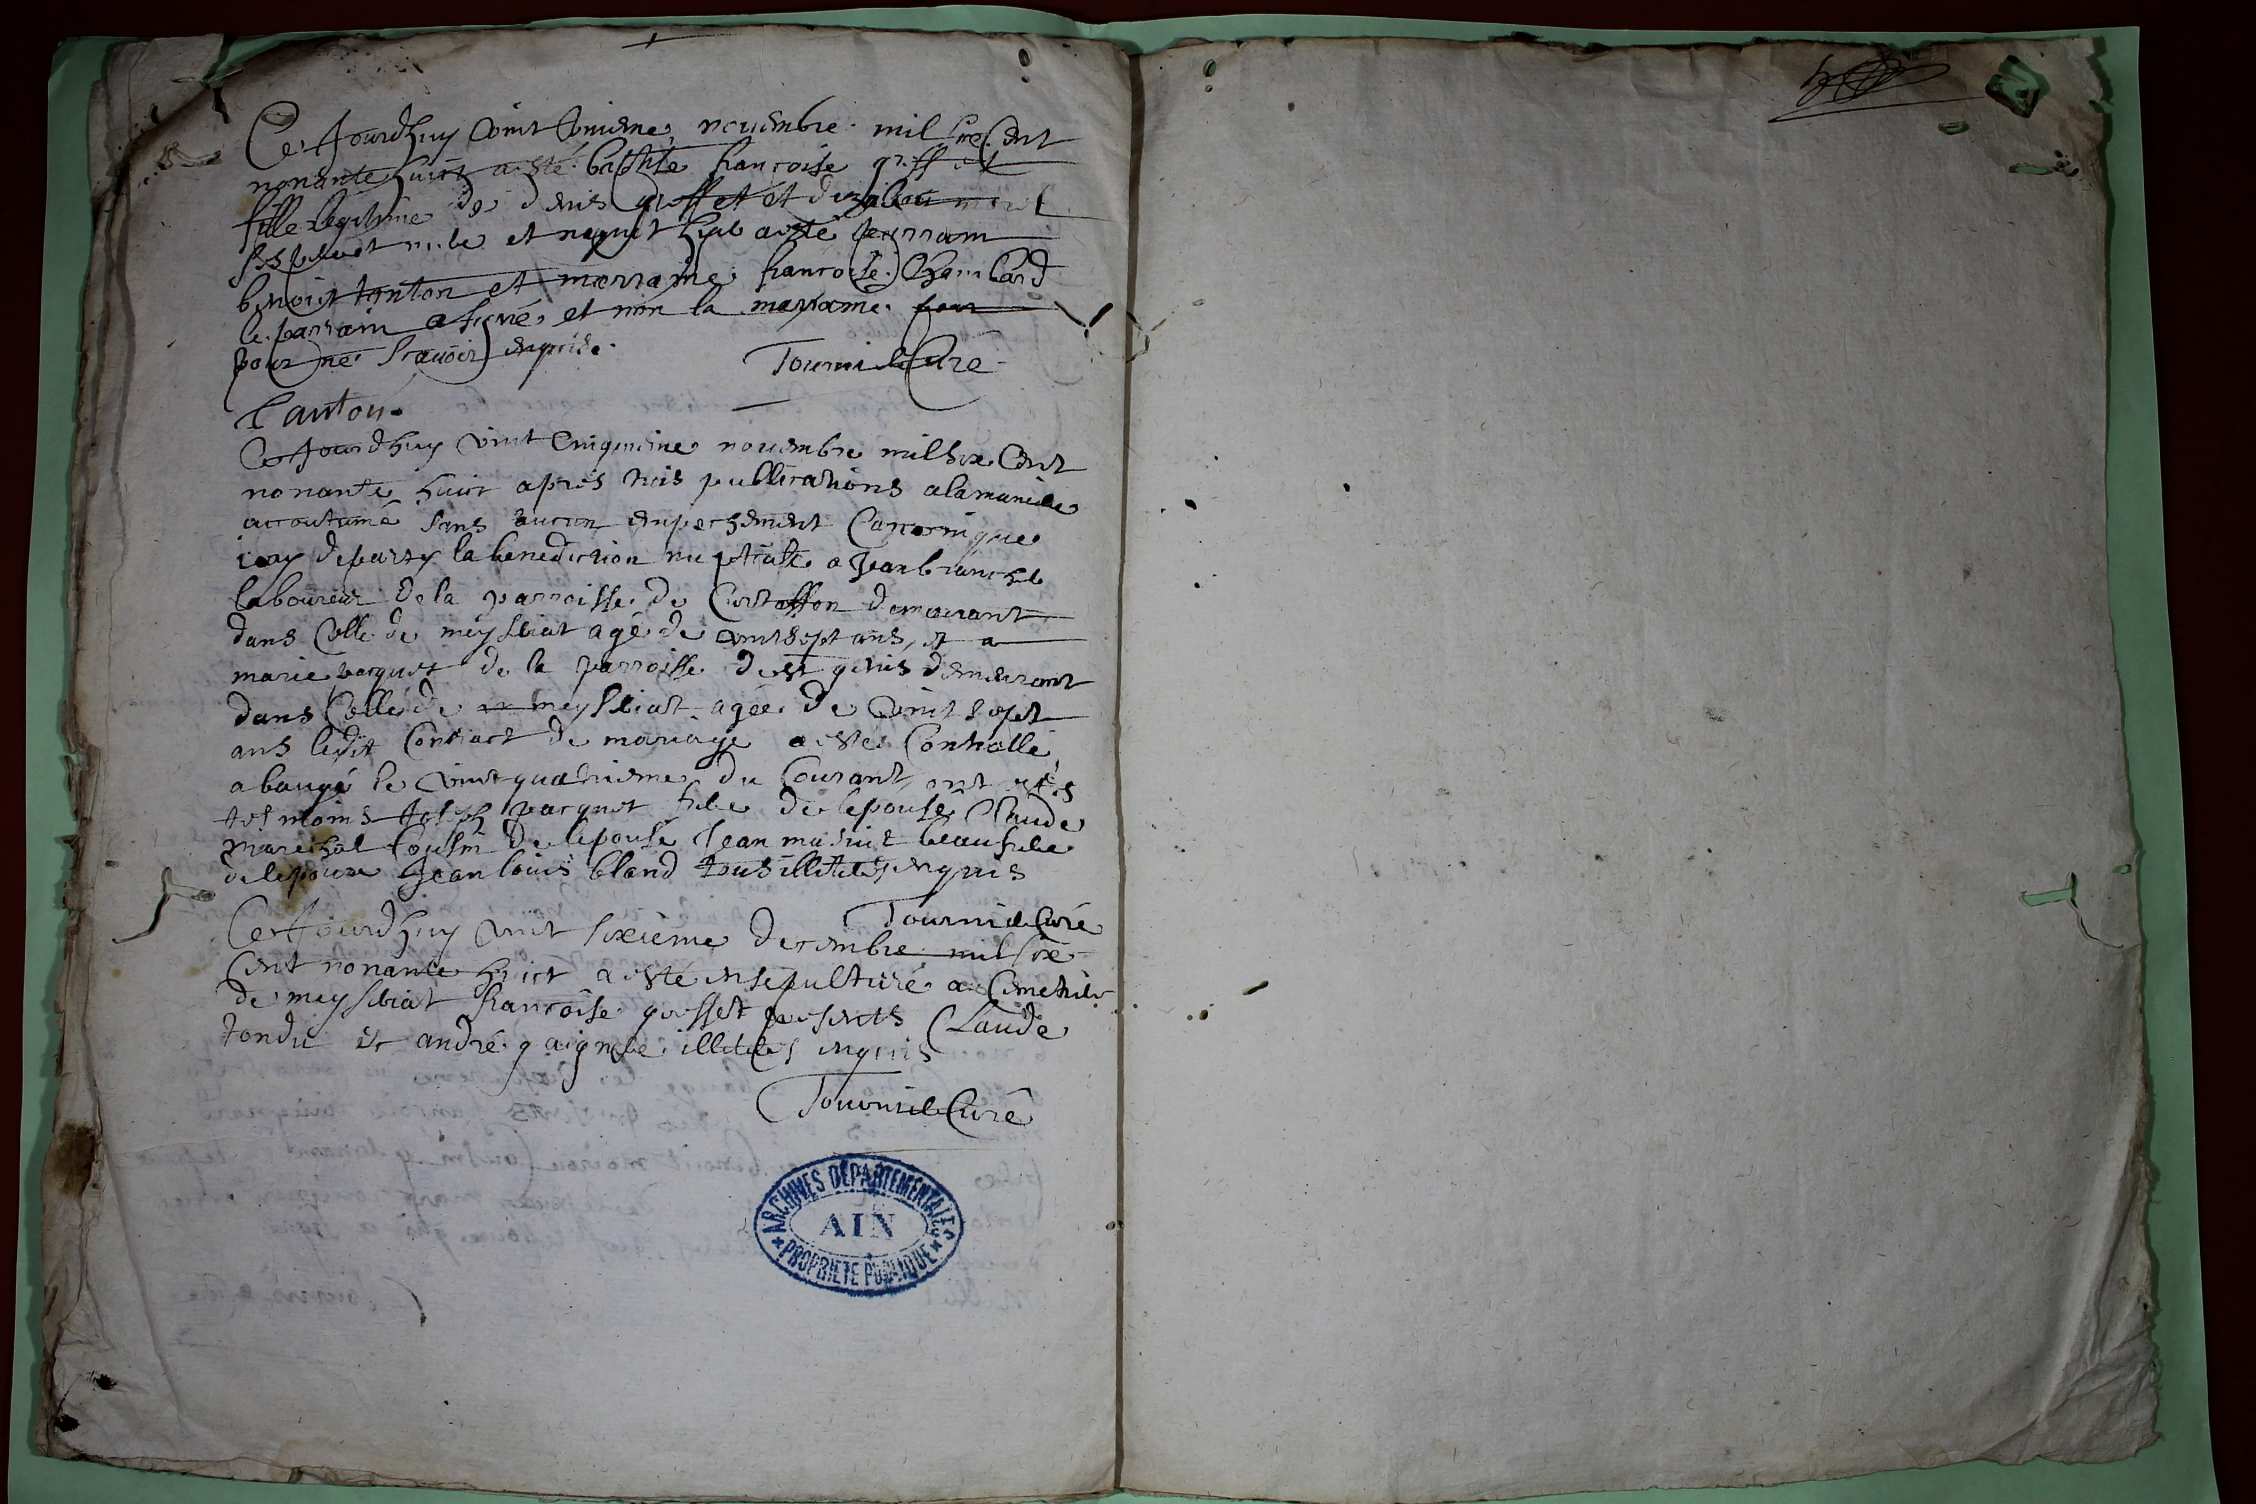 Ce Jourdhuy vint novembre mil sixe Cent
nonante huict a esté baptisée francoise greffet
fille legitime de denis greffet et
ses pere et mere et naquit hier a esté parrain
benoist tanton et marraine francoise Chambard
le parrain a signé et non la marraine
pour ne scavoir enquise
Tournier Curé
Tanton
Ce Jourdhuy vint cinquieme novembre mil sixe Cent
nonante huict apres trois publications a la maniere
accoutumé sans aucun empechement Canonique
iay departy la benediction nuptiale a Jean
laboureur de la parroisse de Curtaffon demeurant
dans Celle de meysseriat agé de vint sept ans, et a
marie pacquet de la parroisse de st genis demeurant
dans Celle de meysseriat agée de vint sept
ans ledit Contract de mariage a estes Controllé
a baugé le vint quatrieme du Courant, ont estés
tesmoins Joseph pacquet frere de lepouse Claude
marechal Cousin de lepouse Jean beaufrere
de lepoux Jean louis bland tous illiteres enquis
Tournier Curé
Ce Jourdhuy vint sixieme decembre mil sixe
Cent nonante huict a esté ensepulturé au Cimetiere
de meysseriat francoise greffet presents Claude
tondu et andré illiteres enquis
Tournier Curé
ARCHIVES DÉPARTEMENTALES
AIN
PROPRIÉTÉ PUBLIQUE